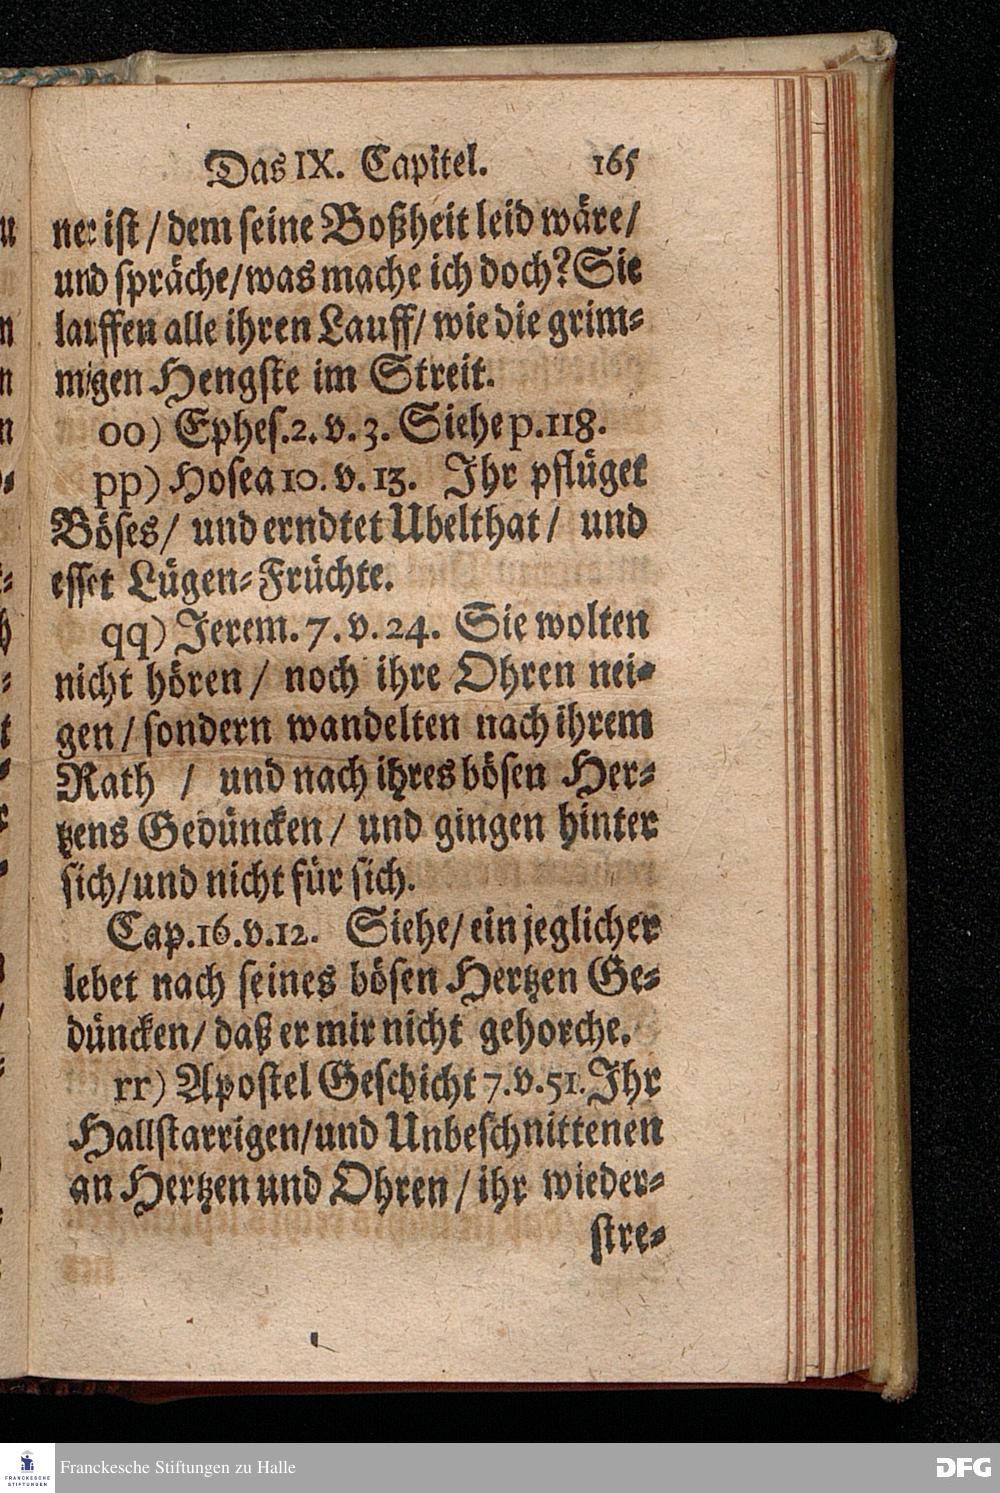 Das IX. Capitel. 165
ner ist / dem seine Boßheit leid wäre/
und spräche/was mache ich doch? Sie
lauffen alle ihren Lauff/ wie die grim-
migen Hengste im Streit.
oo) Ephes.2. v. 3. Siehe p.118.
pp) Hosea 10. v. 13. Ihr pflüget
Böses/ und erndtet Ubelthat/ und
esset Lügen-Früchte.
qq) Jerem. 7. v. 24. Sie wolten
nicht hören / noch ihre Ohren nei-
gen / sondern wandelten nach ihrem
Rath / und nach ihres bösen Her-
tzens Gedüncken/ und gingen hinter
sich/und nicht für sich.
Cap.16.v.12. Siehe/ ein jeglicher
lebet nach seines bösen Hertzen Ge-
düncken/ daß er mir nicht gehorche.
rr) Apostel Geschicht 7.v.51. Ihr
Hallstarrigen/und Unbeschnittenen
an Hertzen und Ohren / ihr wieder-
stre-
FRANCKESCHE
STIFTUNGEN
Franckesche Stiftungen zu Halle
DFG